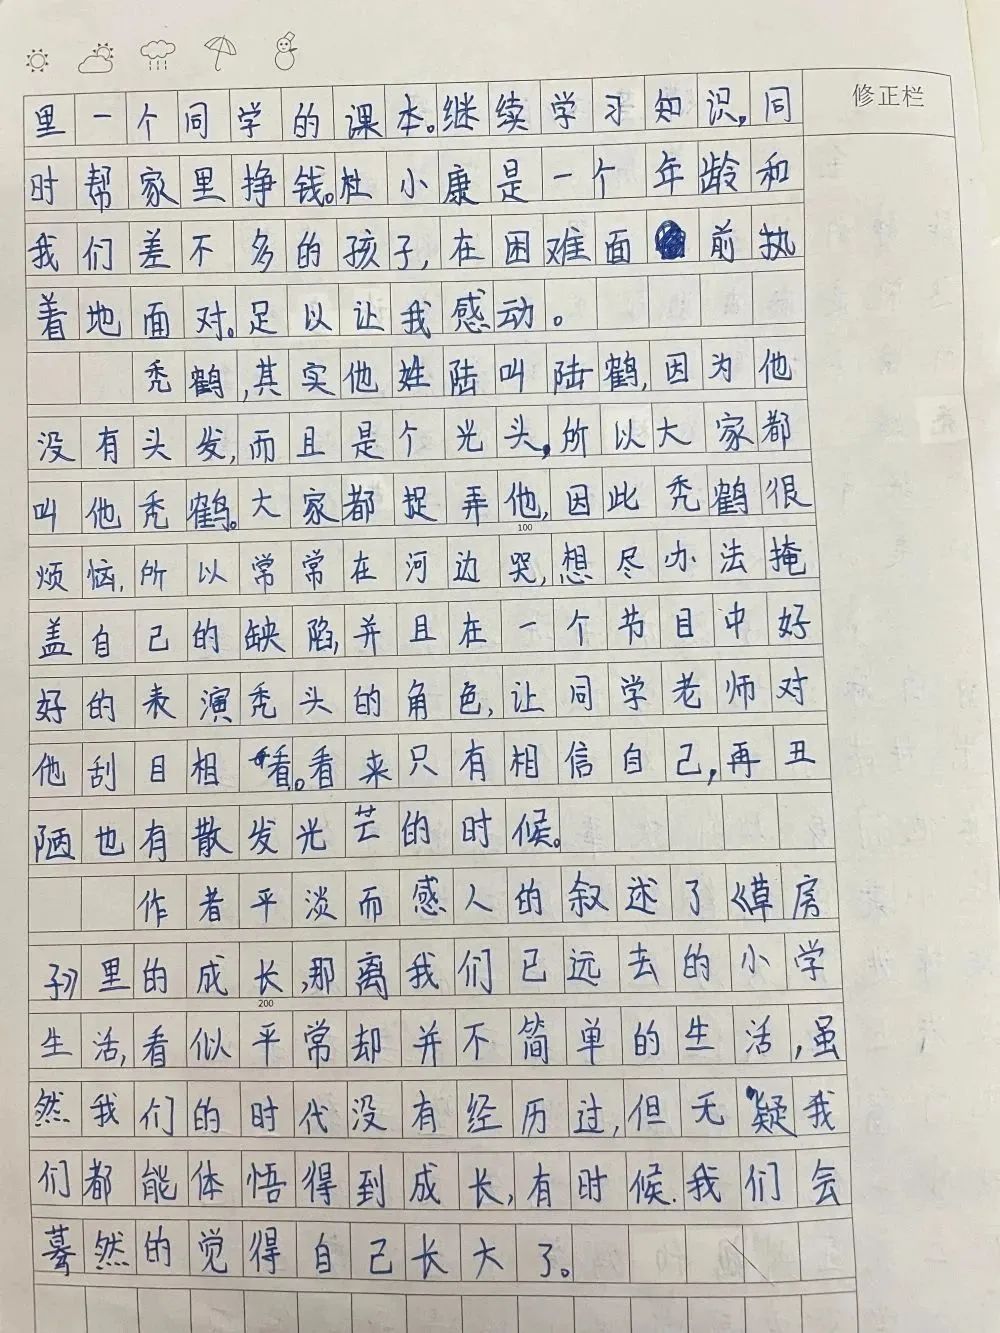 修正栏
里一个同学的课本。继续学习知识，同
时帮家里挣钱。杜小康是一个年龄和
我们差不多的孩子，在困难面前执
着地面对。足以让我感动。
秃鹤，其实他姓陆叫陆鹤，因为他
没有头发，而且是个光头，所以大家都
叫他秃鹤。大家都捉弄他，因此秃鹤很
100
烦恼，所以常常在河边哭，想尽办法掩
盖自己的缺陷，并且在一个节目中好
好的表演秃头的角色，让同学老师对
他刮目相看。看来只有相信自己，再丑
陋也有散发光芒的时候。
作者平淡而感人的叙述了《草房
子》里的成长，那离我们已远去的小学
200
生活，看似平常却并不简单的生活，虽
然我们的时代没有经历过，但无疑我
们都能体悟得到成长，有时候.我们会
蓦然的觉得自己长大了。